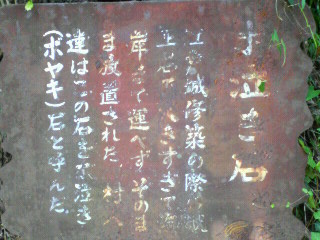 泣き石
江戸城修築の際、城
石で大きすぎて海
岸まで運べずそのま
ま放置された。村人
達はこの石を泣き
(ボヤキ)石と呼んだ。